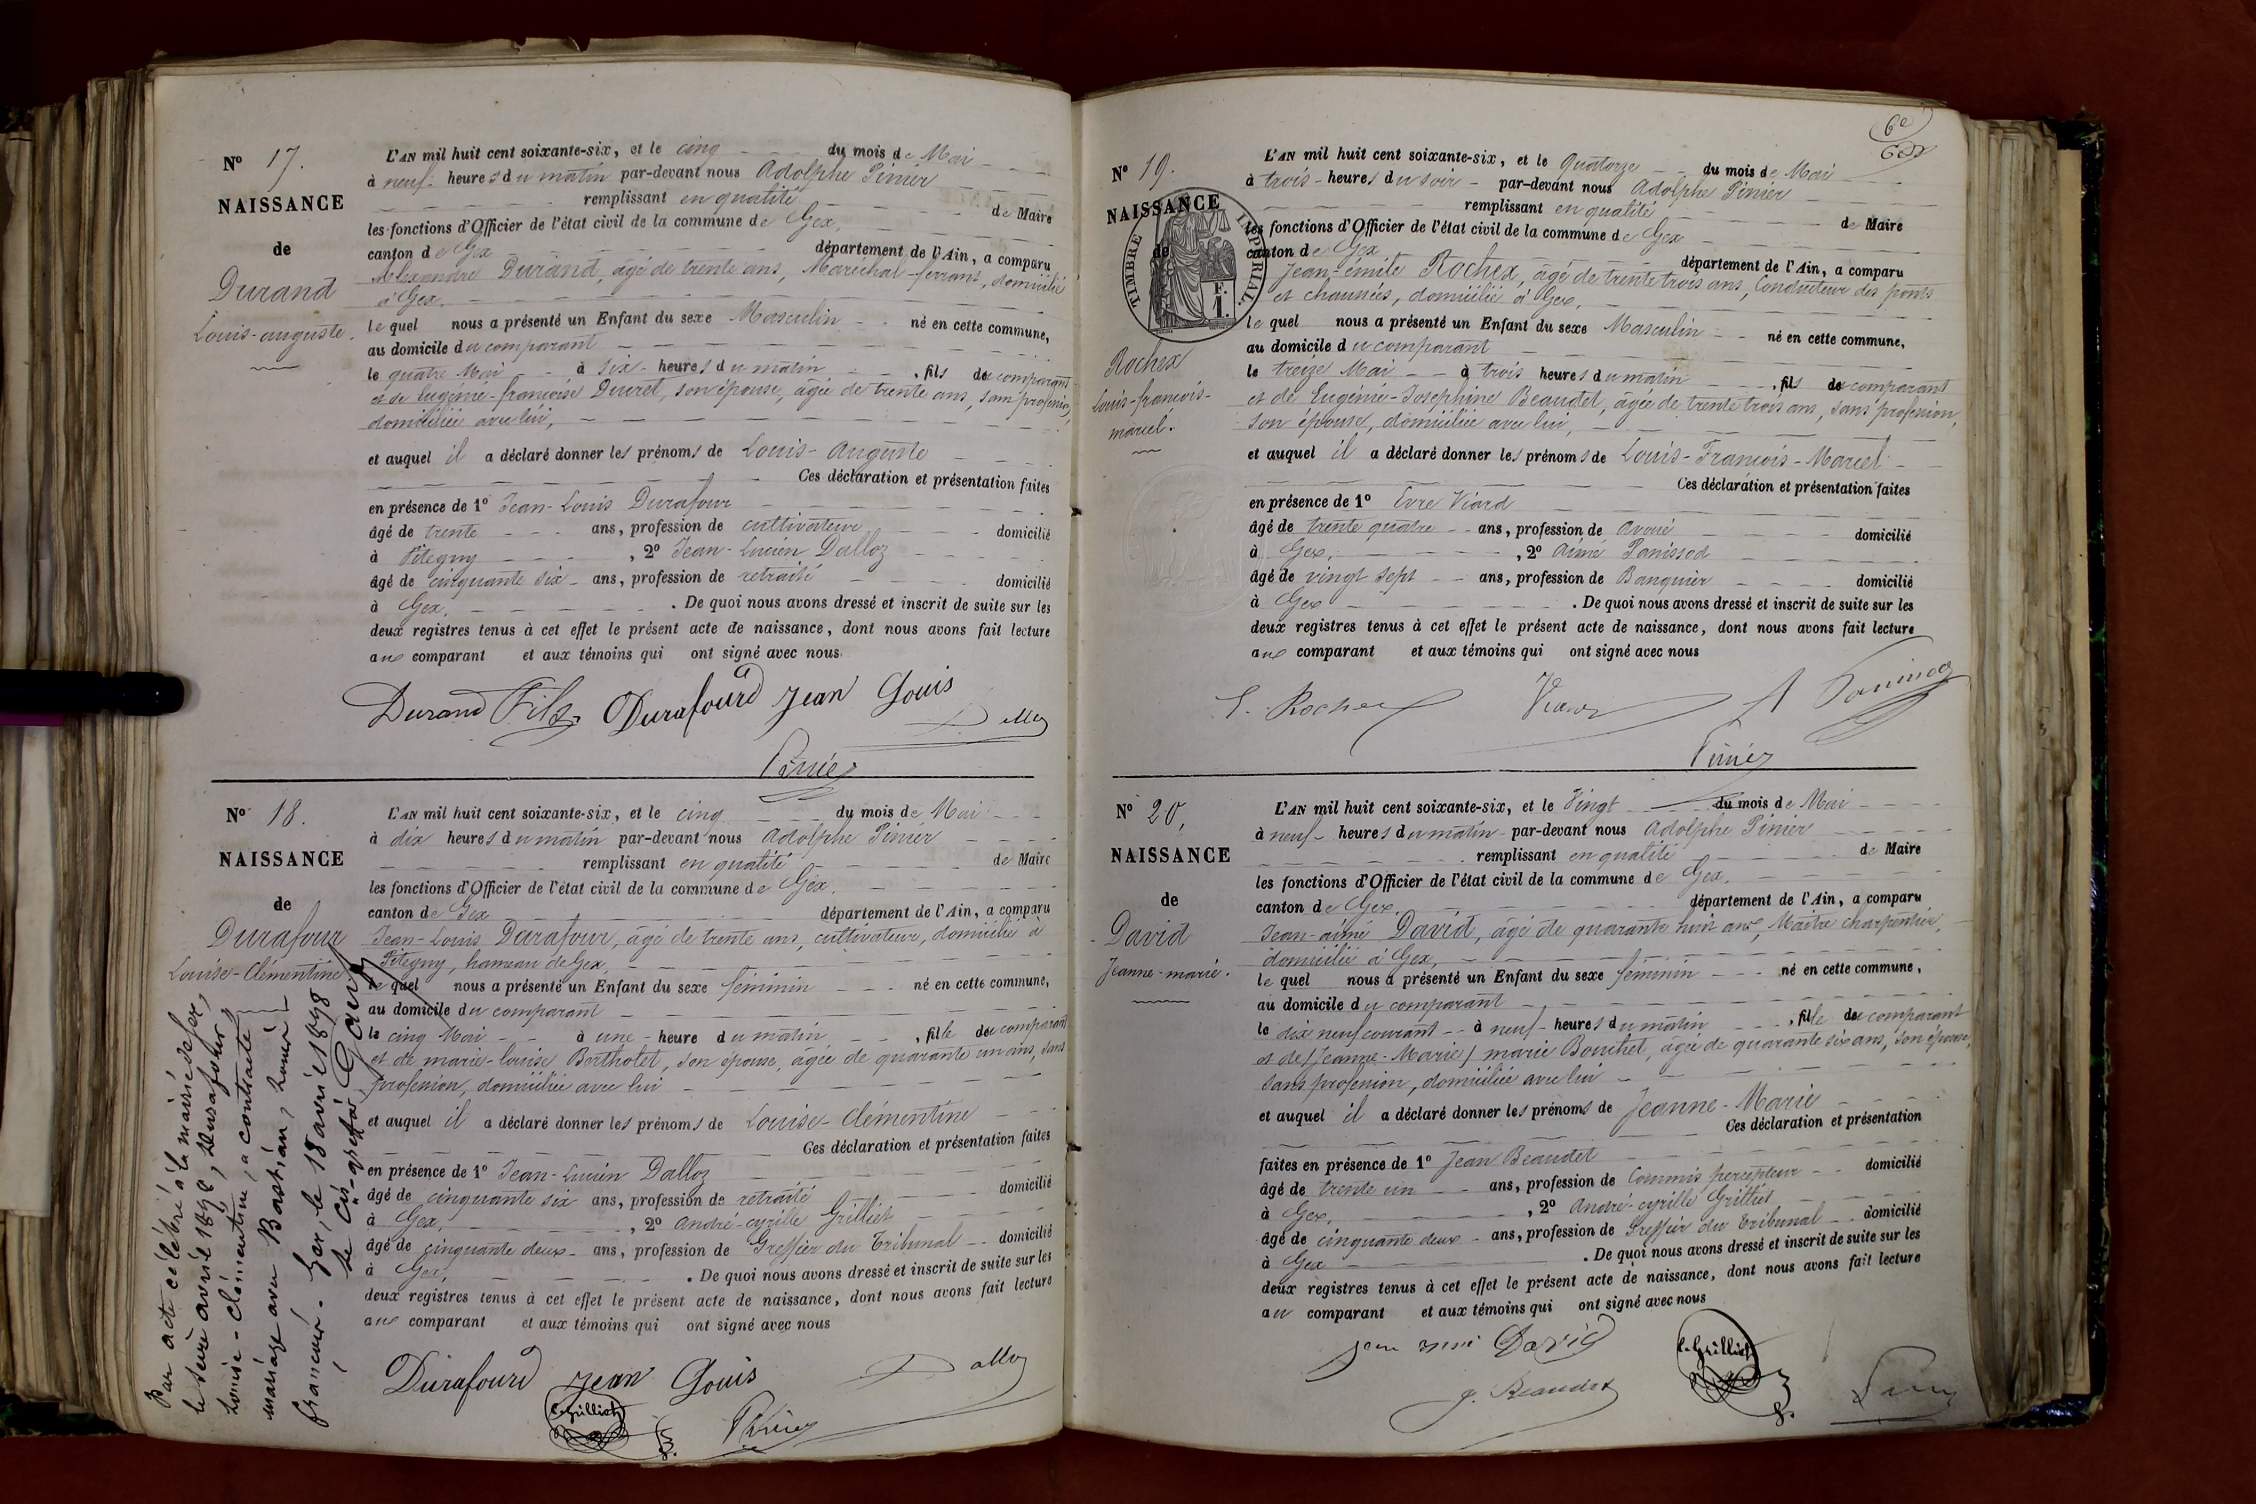 N° 17.
NAISSANCE
de
Durand
Louis-auguste.
L'AN mil huit cent soixante-six, et le cinq du mois de Mai
à neuf heures du matin par-devant nous Adolphe Pinier
remplissant en qualité de Maire
les fonctions d'Officier de l'état civil de la commune de Gex,
canton de Gex département de l'Ain, a comparu
Alexandre Durand, âgé de trente ans, Maréchal-ferrant, domicilié
à Gex,
le quel nous a présenté un Enfant du sexe Masculin né en cette commune,
au domicile du comparant
le quatre Mai à six heures du matin, fils du comparant
et de Eugénie-françoise Ducret, son épouse, âgée de trente ans, sans profession,
domiciliée avec lui,
et auquel il a déclaré donner les prénoms de Louis-Auguste
Ces déclaration et présentation faites
en présence de 1° Jean-Louis Durafour
âgé de trente ans, profession de cultivateur domicilié
à Pitegny, 2° Jean-Lucien Dalloz
âgé de cinquante six ans, profession de retraité domicilié
à Gex. . De quoi nous avons dressé et inscrit de suite sur les
deux registres tenus à cet effet le présent acte de naissance, dont nous avons fait lecture
au comparant et aux témoins qui ont signé avec nous
Durand Fils Durafourd Jean Louis
Dalloz
Pinier
N° 18.
NAISSANCE
de
Durafour
Louise-Clémentine
L'AN mil huit cent soixante-six, et le cinq du mois de Mai
à dix heures du matin par-devant nous Adolphe Pinier
remplissant en qualité de Maire
les fonctions d'Officier de l'état civil de la commune de Gex.
canton de Gex département de l'Ain, a comparu
Jean-Louis Durafour, âgé de trente ans, cultivateur, domicilié à
Pitegny, hameau de Gex,
le quel nous a présenté un Enfant du sexe féminin né en cette commune,
au domicile du comparant
le cinq Mai à une heure du matin, fille du comparant
et de marie-louise Bertholet, son épouse, âgée de quarante un ans, sans
profession, domiciliée avec lui
et auquel il a déclaré donner les prénoms de Louise-Clémentine
Ces déclaration et présentation faites
en présence de 1° Jean-Lucien Dalloz
âgé de cinquante six ans, profession de retraité domicilié
à Gex, 2° André-cyrille Grilliet
âgé de cinquante deux ans, profession de Greffier du Tribunal domicilié
à Gex, . De quoi nous avons dressé et inscrit de suite sur les
deux registres tenus à cet effet le présent acte de naissance, dont nous avons fait lecture
au comparant et aux témoins qui ont signé avec nous
Durafourd Jean Louis Dalloz
C. Grilliet Pinier
Par acte célébré à la mairie de Gex,
le seize avril 1898, Durafour
Louise-Clémentine, a contracté
mariage avec Bastian,
françois. Gex, le 18 avril 1898
le greffier
N° 19.
NAISSANCE
de
TIMBRE IMPERIAL.
F.
1.
Rochex
Louis-françois-
marcel.
6e
L'AN mil huit cent soixante-six, et le Quatorze du mois de Mai
à trois heures du soir par-devant nous Adolphe Pinier
remplissant en qualité de Maire
les fonctions d'Officier de l'état civil de la commune de Gex
canton de Gex département de l'Ain, a comparu
Jean-émile Rochex, âgé de trente trois ans, Conducteur des ponts
et chaussées, domicilié à Gex,
le quel nous a présenté un Enfant du sexe Masculin né en cette commune,
au domicile du comparant
le treize Mai à trois heures du matin, fils du comparant
et de Eugénie-Josephine Beaudet, âgée de trente trois ans, sans profession,
son épouse, domiciliée avec lui,
et auquel il a déclaré donner les prénoms de Louis-François-Marcel
Ces déclaration et présentation faites
en présence de 1° Evre Viard
âgé de trente quatre ans, profession de avoué domicilié
à Gex, 2° Aimé Panissod
âgé de vingt sept ans, profession de Banquier domicilié
à Gex . De quoi nous avons dressé et inscrit de suite sur les
deux registres tenus à cet effet le présent acte de naissance, dont nous avons fait lecture
au comparant et aux témoins qui ont signé avec nous
E. Rochex Viard A Panissod
Pinier
N° 20,
NAISSANCE
de
David
Jeanne-marie.
L'AN mil huit cent soixante-six, et le Vingt du mois de Mai
à neuf heures du matin par-devant nous Adolphe Pinier
remplissant en qualité de Maire
les fonctions d'Officier de l'état civil de la commune de Gex.
canton de Gex, département de l'Ain, a comparu
Jean-aimé David, âgé de quarante huit ans, Maître charpentier,
domicilié à Gex,
le quel nous a présenté un Enfant du sexe féminin né en cette commune,
au domicile du comparant
le dix neuf courant à neuf heures du matin, fille du comparant
et de /Jeanne-Marie/ marie Bouchet, âgée de quarante six ans, son épouse,
sans profession, domiciliée avec lui
et auquel il a déclaré donner les prénoms de Jeanne-Marie
Ces déclaration et présentation
faites en présence de 1° Jean Beaudet
âgé de trente un ans, profession de Commis percepteur domicilié
à Gex, 2° André-cyrille Grilliet
âgé de cinquante deux ans, profession de Greffier du Tribunal domicilié
à Gex . De quoi nous avons dressé et inscrit de suite sur les
deux registres tenus à cet effet le présent acte de naissance, dont nous avons fait lecture
au comparant et aux témoins qui ont signé avec nous
Jean aimé David C. Grilliet
J. Beaudet